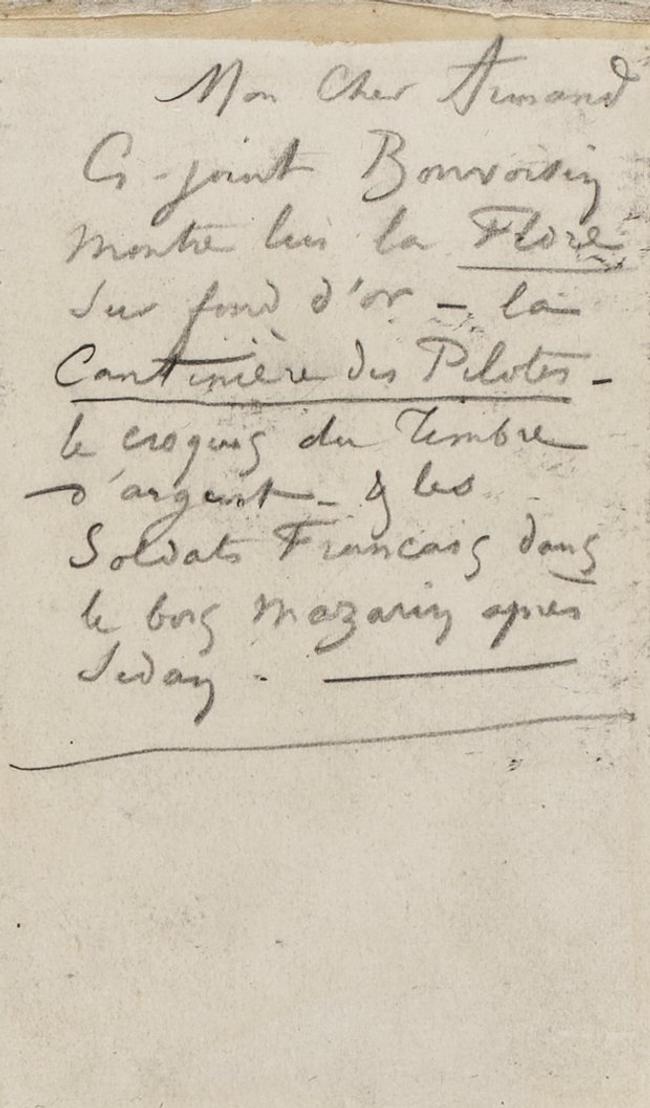 Mon Cher Armand
Ci-joint Bonvoisin
montre lui la Flore
sur fond d'or – la
Cantinière des Pilotes –
le croquis du Timbre
d'argent – & les
Soldats Francais dans
le bois Mazarin après
Sedan .